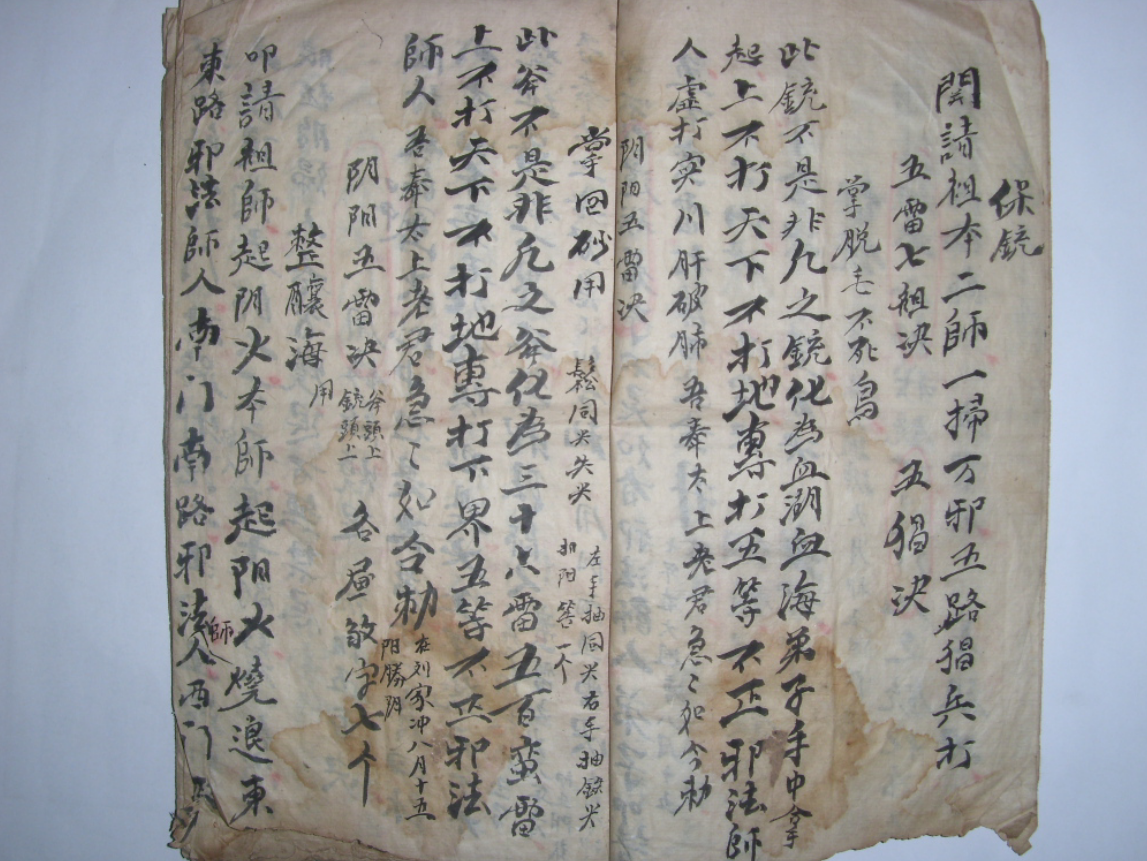 保銃
闁請祖本二師一掃万邪五路猖兵打
五雷七祖决 五猖决
掌脱毛不死鳥
此銃不是非凢之銃化為血湖血海弟子手中拿
起上不打天下不打地專打五等不正邪法師
人虚打实川肝破肺吾奉太上老君急〻如令勅
阴阳五雷决
掌回砂用 鬆同尖失尖
左手抽同尖右手抽 尖
阳 一个
此斧不是非凢之斧化為三十六雷五百蛮雷
上不打天下不打地專打下界五等不正邪法
師人吾奉太上老君急〻如令勅 在刘家冲八月十五
阳勝阴
阴阳五雷决 斧頭上 銃頭上 各 敬字七个
整釀海用
叩請祖師起阴火本師起阳火燒浪東
東路邪法師人南门南路邪法師人西门